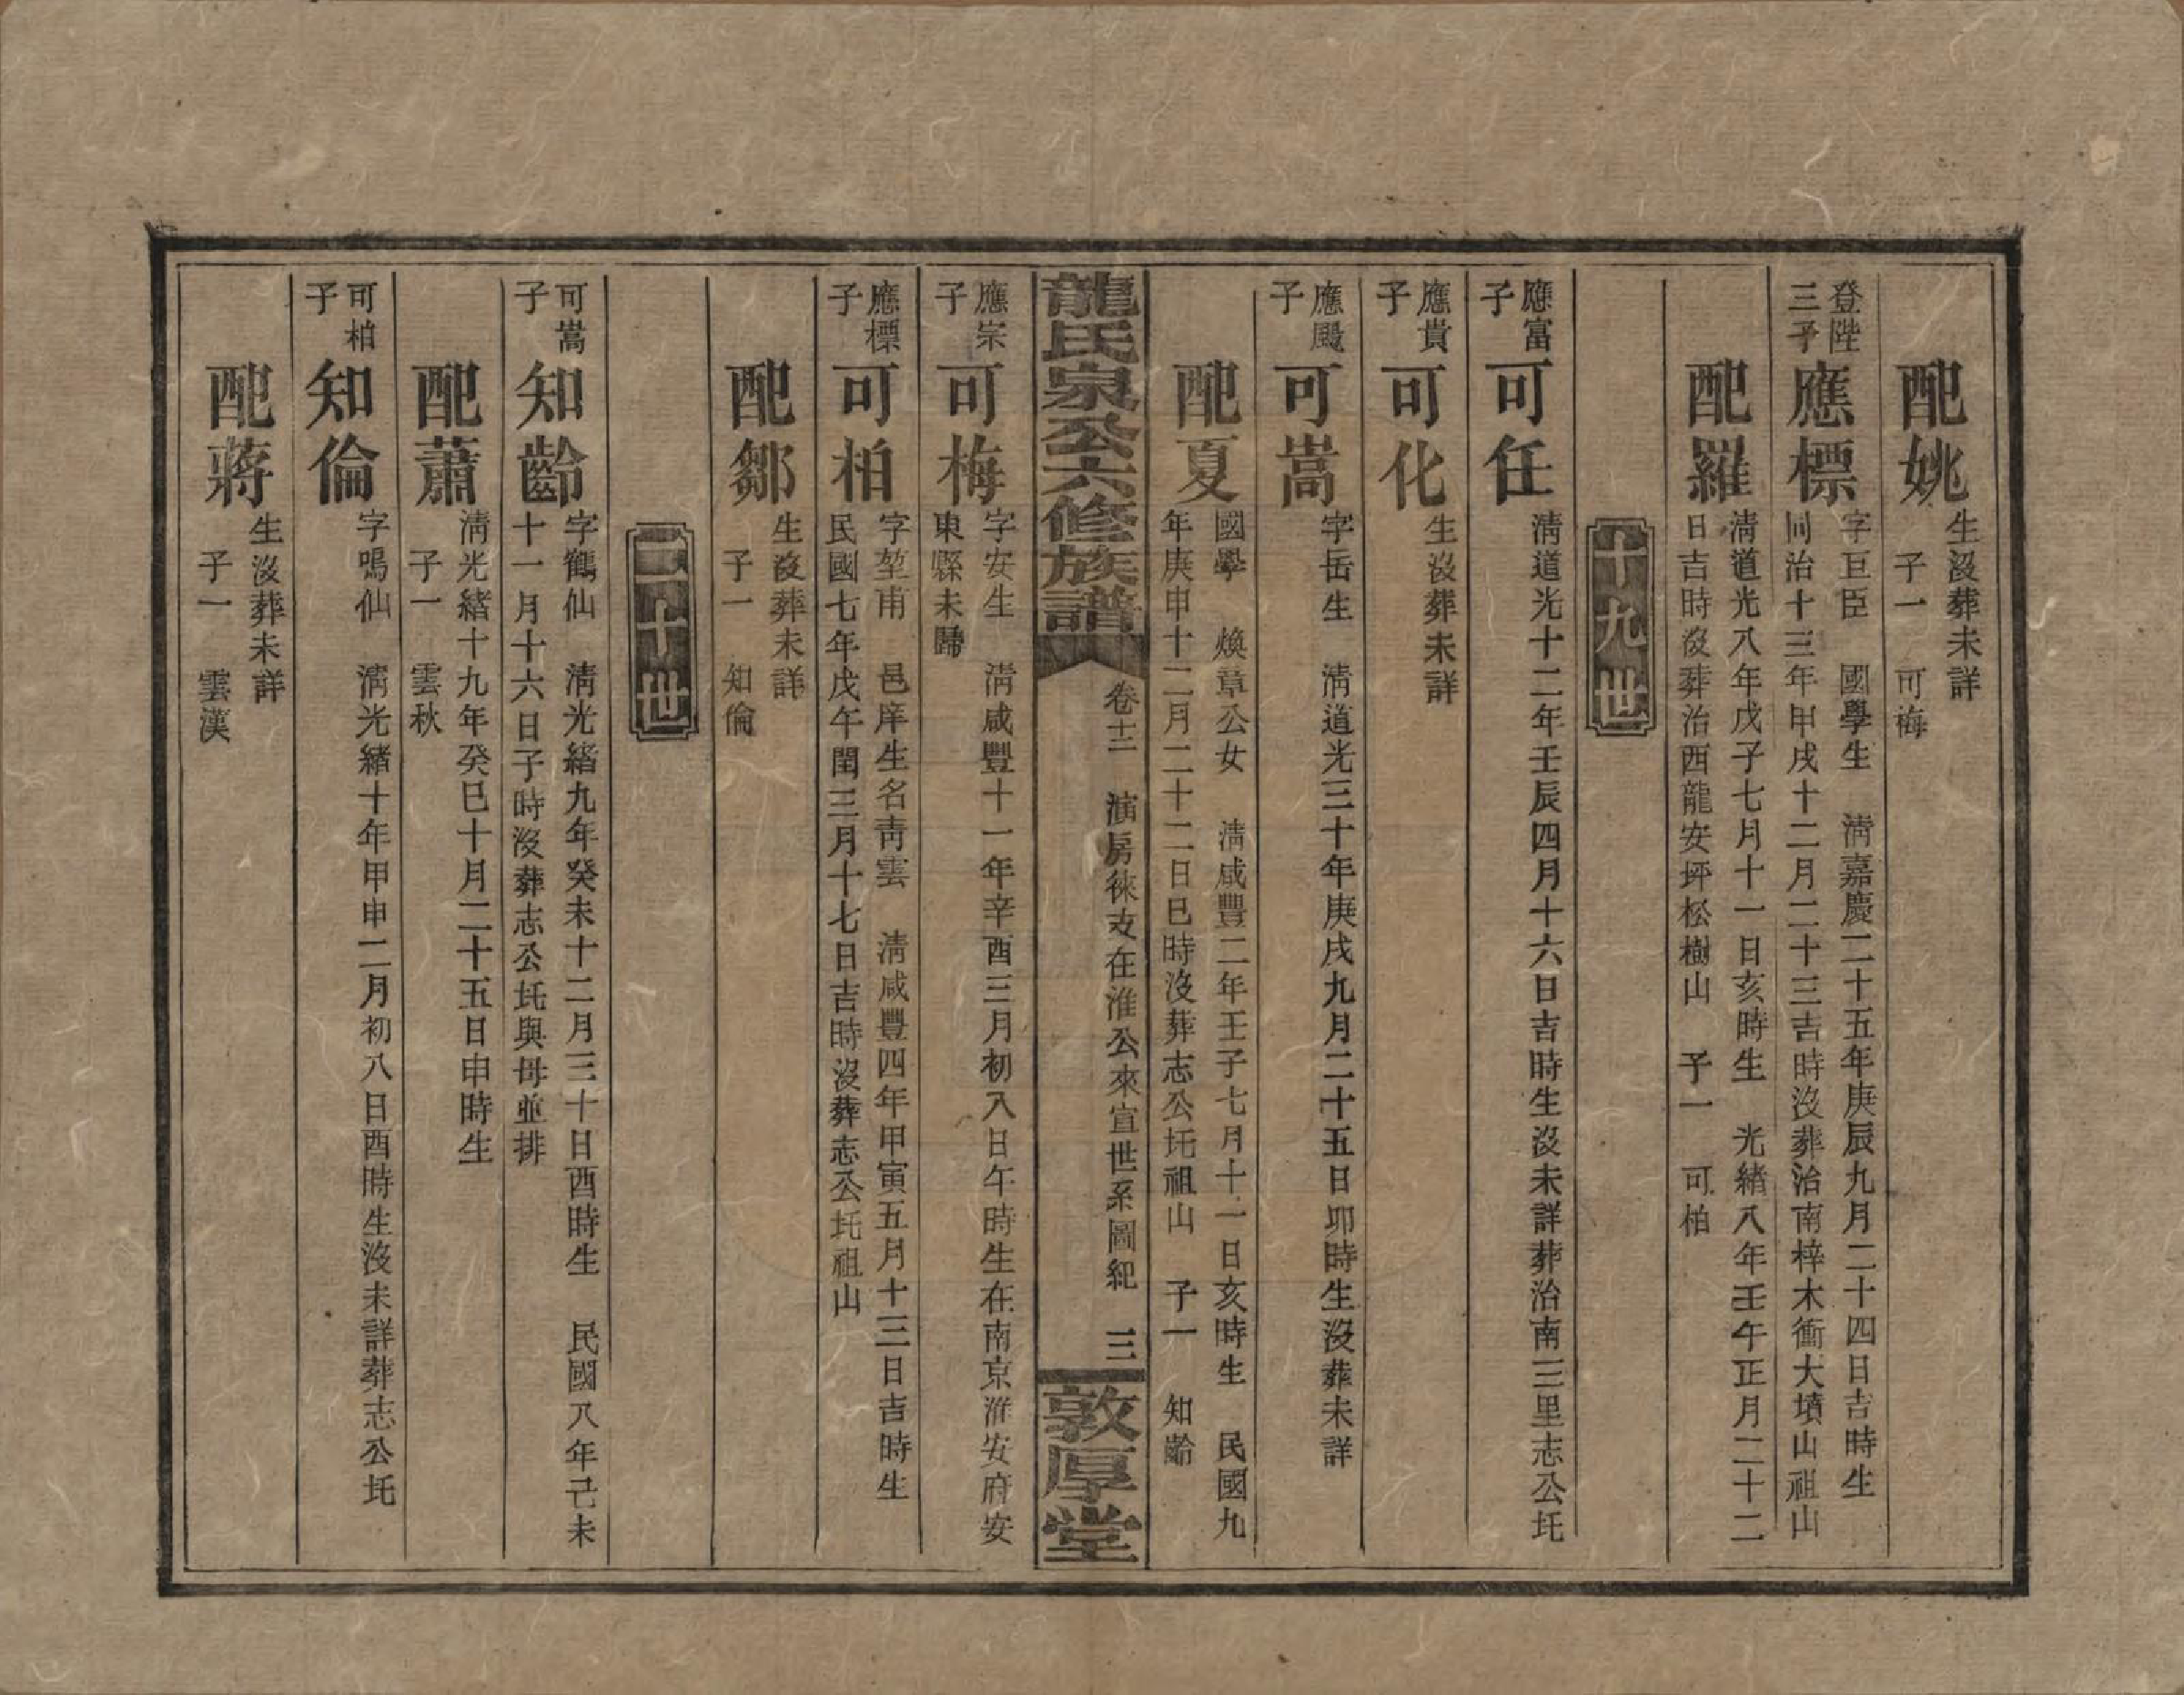 配姚
生沒葬未詳
子一　可梅
登陛
三子
應標
字巨臣　國學生　淸嘉慶二十五年庚辰九月二十四日吉時生
同治十三年甲戌十二月二十三吉時沒葬治南梓木衝大墳山祖山
配羅
淸道光八年戊子七月十一日亥時生　光緒八年壬午正月二十二
日吉時沒葬治西龍安坪松樹山　子一　可柏
十九世
應富
子
可任
淸道光十二年壬辰四月十六日吉時生沒未詳葬治南三里志公圫
應貴
子
可化
生沒葬未詳
應颺
子
可嵩
字岳生　淸道光三十年庚戌九月二十五日卯時生沒葬未詳
配夏
國學　煥章公女　淸咸豐二年壬子七月十一日亥時生　民國九
年庚申十二月二十二日巳時沒葬志公圫祖山　子一　知齡
龍氏泉公六修族譜
卷十二　演房徠支在淮公來宣世系圖紀　三
敦厚堂
應宗
子
可梅
字安生　淸咸豐十一年辛酉三月初八日午時生在南京淮安府安
東縣未歸
應標
子
可柏
字堃甫　邑庠生名靑雲　淸咸豐四年甲寅五月十三日吉時生
民國七年戊午閏三月十七日吉時沒葬志公圫祖山
配鄒
生沒葬未詳
子一　知倫
二十世
可嵩
子
知齡
字鶴仙　淸光緒九年癸未十二月三十日酉時生　民國八年己未
十一月十六日子時沒葬志公圫與母並排
配蕭
淸光緒十九年癸巳十月二十五日申時生
子一　雲秋
可柏
子
知倫
字鳴仙　淸光緒十年甲申二月初八日酉時生沒未詳葬志公圫
配蔣
生沒葬未詳
子一　雲漢